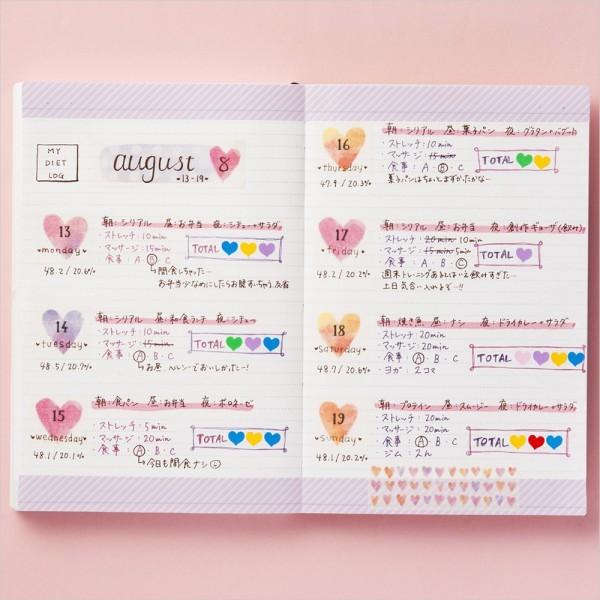 MY
DIET
LOG
august 8
•13-19•
13
monday
48.2 / 20.6%
朝:シリアル 昼:お弁当 夜:シチュー+サラダ
・ストレッチ:10min
・マッサージ:15min
・食事:A・B・C
TOTAL
↳間食しちゃった…
お弁当少なめにしたらお腹すいちゃう、反省
14
tuesday
48.5 / 20.7%
朝:シリアル 昼:和食ランチ 夜:シチュー
・ストレッチ:10min
・マッサージ:15min
・食事:A・B・C
TOTAL
↳お昼、ヘルシーでおいしかったー!
15
wednesday
48.1 / 20.1%
朝:食パン 昼:お弁当 夜:ボロネーゼ
・ストレッチ:5min
・マッサージ:20min
・食事:A・B・C
TOTAL
↳今日も間食ナシ
16
thursday
47.9 / 20.3%
朝:シリアル 昼:菓子パン 夜:グラタン+バゲット
・ストレッチ:10min
・マッサージ:15min
・食事:A・B・C
TOTAL
菓子パンはちょっとまずかったかな…
17
friday
48.2 / 20.2%
朝:シリアル 昼:お弁当 夜:創作ギョーザ(飲み)
・ストレッチ:20min 10min
・マッサージ:15min 5min
・食事:A・B・C
TOTAL
週末トレーニングあるとはいえ飲みすぎた…
土日気合い入れるぞ!!
18
saturday
48.7 / 20.6%
朝:焼き魚 昼:ナシ 夜:ドライカレー+サラダ
・ストレッチ:20min
・マッサージ:20min
・食事:A・B・C
・ヨガ:2コマ
TOTAL
19
sunday
48.1 / 20.2%
朝:プロテイン 昼:スムージー 夜:ドライカレー+サラダ
・ストレッチ:20min
・マッサージ:20min
・食事:A・B・C
・ジム:5km
TOTAL